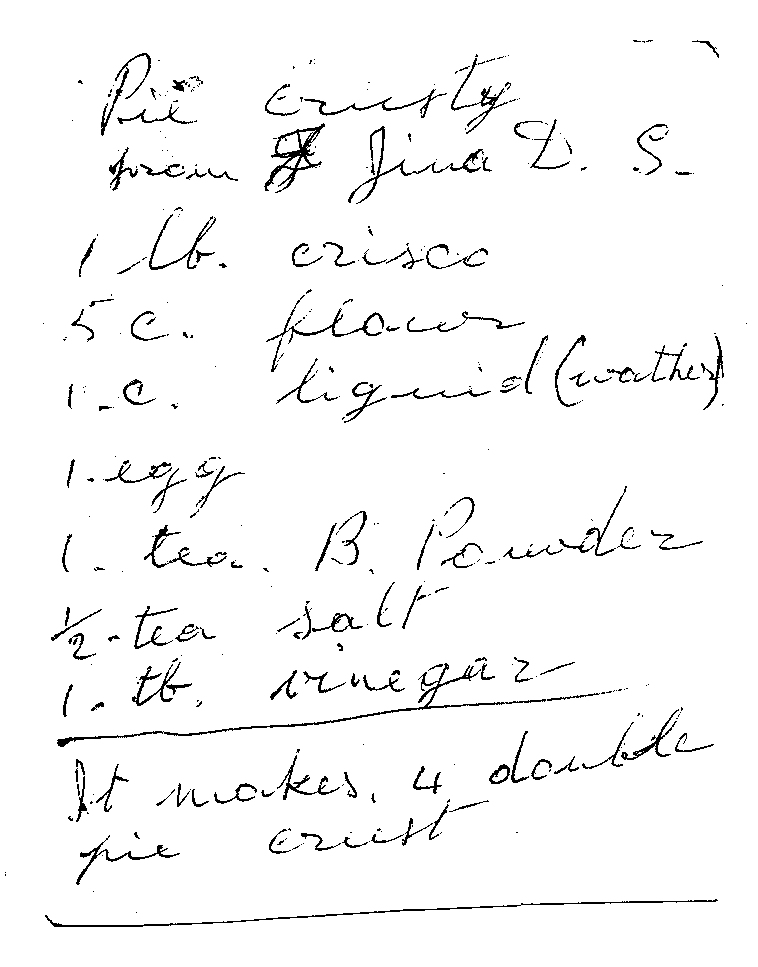 Pie crusty
from Jina D. S.
1 lb. crisco
5 c. flour
1.c. liquid (wather)
1.egg
1. tea. B. Powder
1/2.tea salt
1. tb. vinegar
It makes. 4 double
pie crust